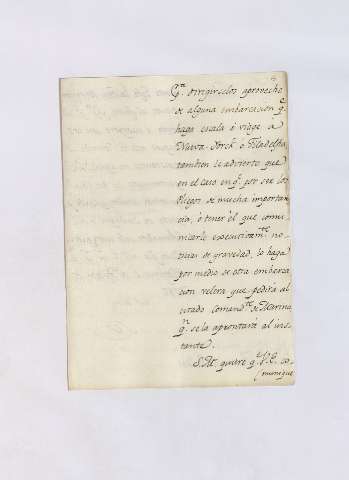 qᵉ dirigirselos aproveche
de alguna embarcacion qᵉ
haga escala ó viage a
Nueva Yorck ó Filadelfia,
tambien le advierto que
en el caso en qᵉ por ser los
Pliegos de mucha importan
cia, ó tener el que comu-
nicarle executivamᵗᵉ no-
ticias de gravedad, lo haga
por medio de otra embarca
cion velera que pedirá al
citado Comandᵗᵉ de Marina
qⁿ se la aprontará al ins-
tante.
S. M. quiere q. V. E. co-
munique